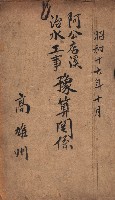 昭和十六年十月
阿公店溪
治水工事
豫算関係
高雄州